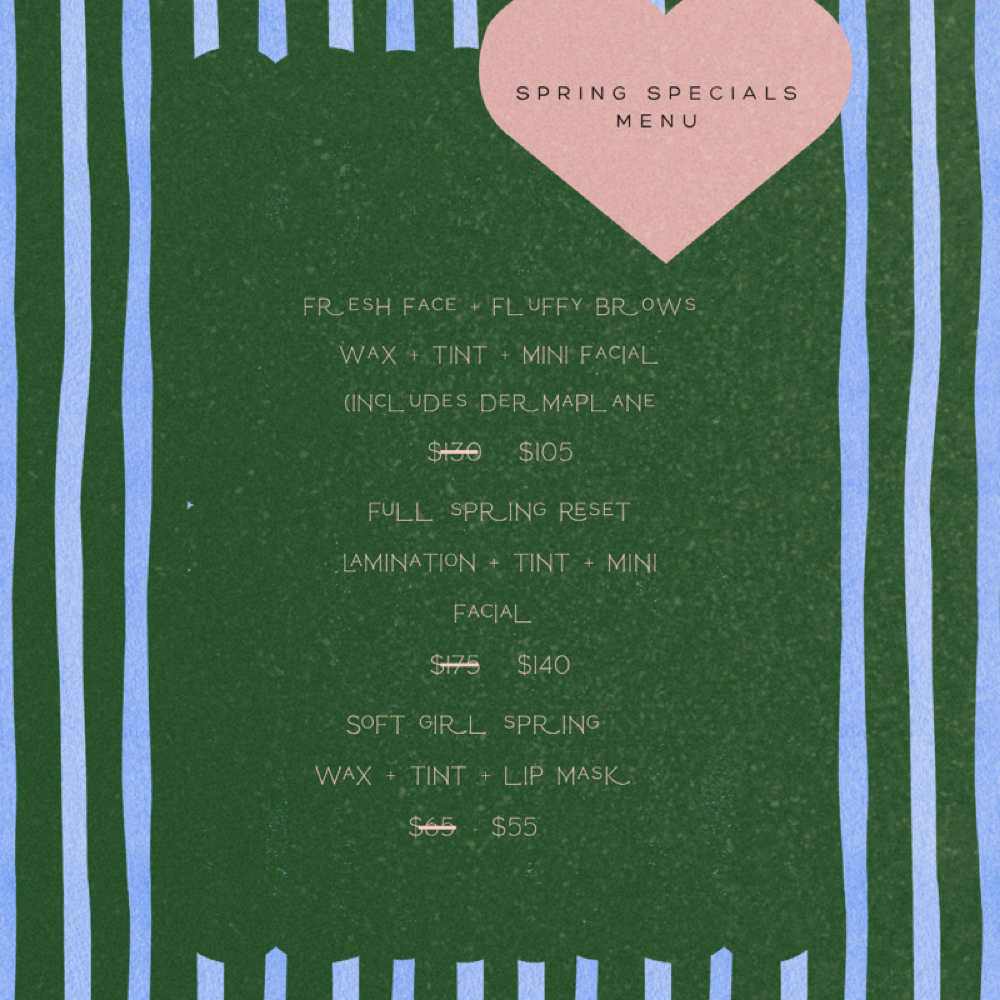 SPRING SPECIALS
MENU
FRESH FACE + FLUFFY BROWS
WAX + TINT + MINI FACIAL
(INCLUDES DERMAPLANE
$130 $105
FULL SPRING RESET
LAMINATION + TINT + MINI
FACIAL
$175 $140
SOFT GIRL SPRING
WAX + TINT + LIP MASK
$65 $55